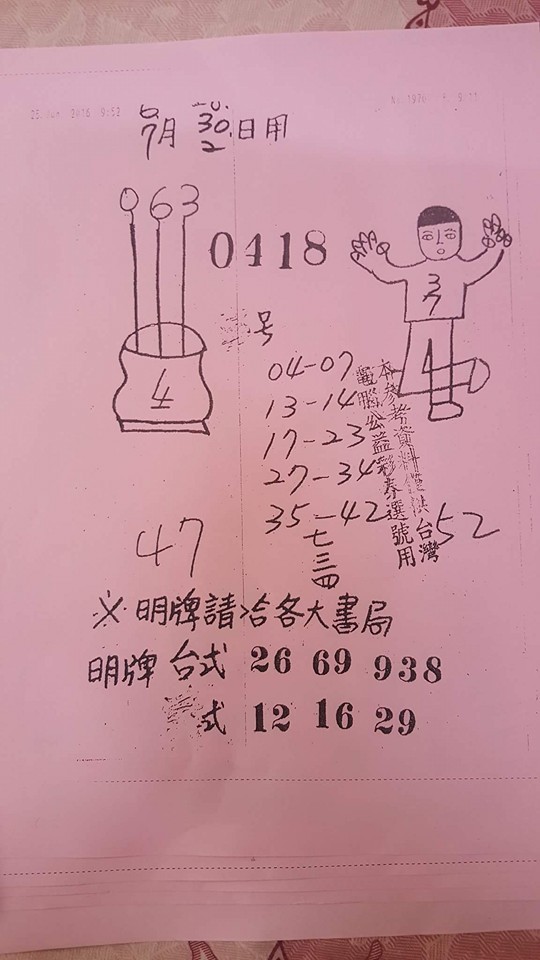 6/7月 30. 2日用
0 6 3
0418
3
7
4
1
号
04-07
13-14
17-23
27-34
35-42
七三四
本參考資料僅供台灣
電腦公益彩券選號用
47
52
※明牌請洽各大書局
明牌 台式 26 69 938
式 12 16 29